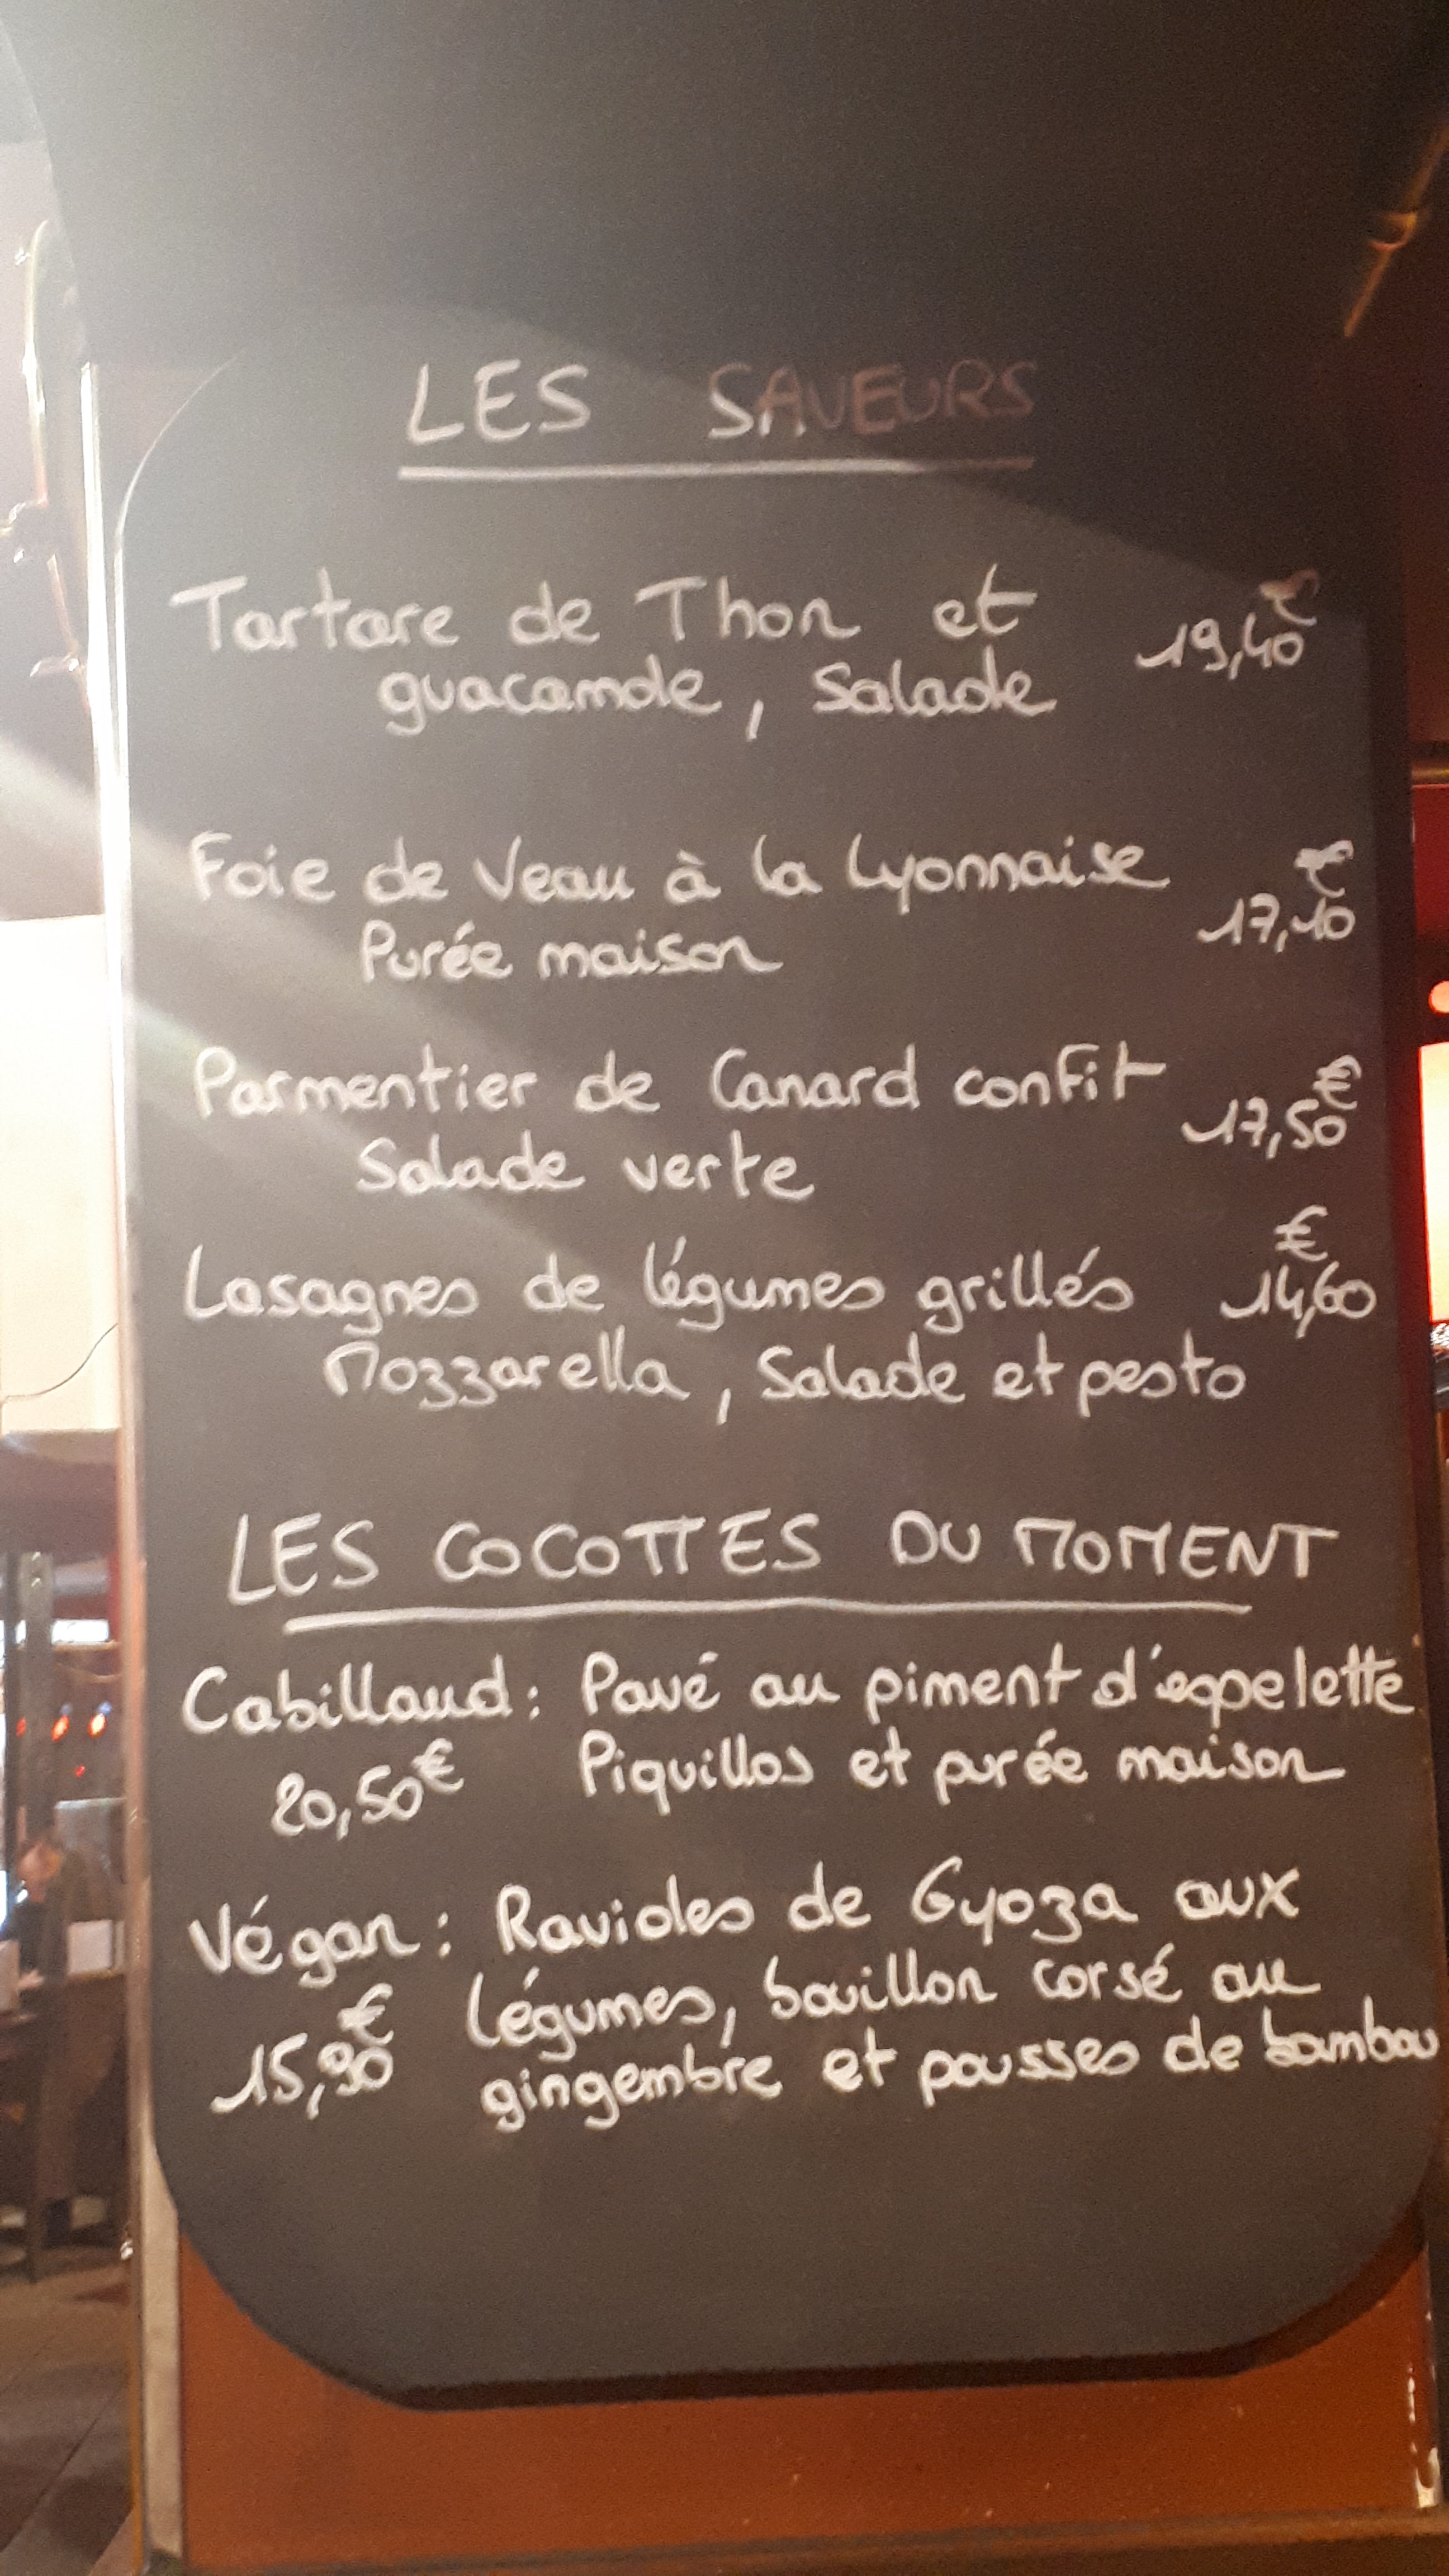 LES SAVEURS
Tartare de Thon et 19,40€
guacamole, Salade
Foie de Veau à la Lyonnaise 17,10€
Purée maison
Parmentier de Canard confit 17,50€
Salade verte
Lasagnes de légumes grillés 14,60€
Mozzarella, Salade et pesto
LES COCOTTES DU MOMENT
Cabillaud : Pavé au piment d'espelette
20,50€ Piquillos et purée maison
Végan : Ravioles de Gyoza aux
légumes, bouillon corsé au
15,90€ gingembre et pousses de bambou